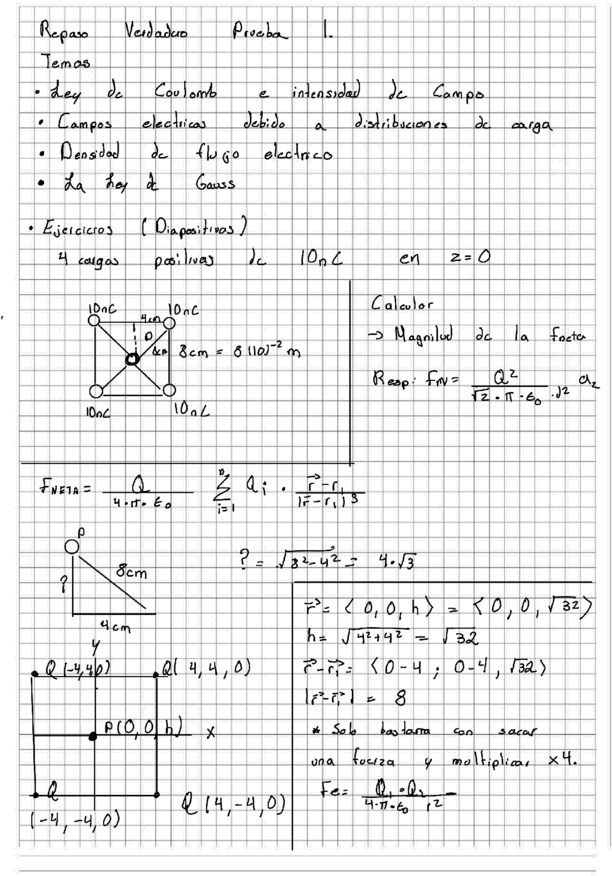 Repaso Verdadero Prueba 1.
Temas
• Ley de Coulomb e intensidad de Campo
• Campos electricos debido a distribuciones de carga
• Densidad de flujo electrico
• La Ley de Gauss
• Ejercicios (Diapositivas)
4 cargas positivas de 10nC en z=0
10nC 10nC
4cm
8cm = 8(10)⁻² m
10nC 10nC
Calcular
→ Magnitud de la fneta
Resp: FN = Q² / (√2 · π · ε₀ · d²) az
FNETA = Q / (4·π·ε₀) Σ i=1 n Qi · (r⃗-r₁) / |r⃗-r₁|³
P
?
8cm
4cm
? = √(8²-4²) = 4·√3
y
Q(-4,4,0) Q(4,4,0)
P(0,0,h) x
Q
(-4,-4,0)
Q(4,-4,0)
r⃗ = ⟨0,0,h⟩ = ⟨0,0,√32⟩
h = √(4²+4²) = √32
r⃗-r⃗₁ = ⟨0-4; 0-4, √32⟩
|r⃗-r⃗₁| = 8
* Solo bastara con sacar
una fuerza y multiplicar x4.
Fe = Q₁·Q₂ / (4·π·ε₀ r²)